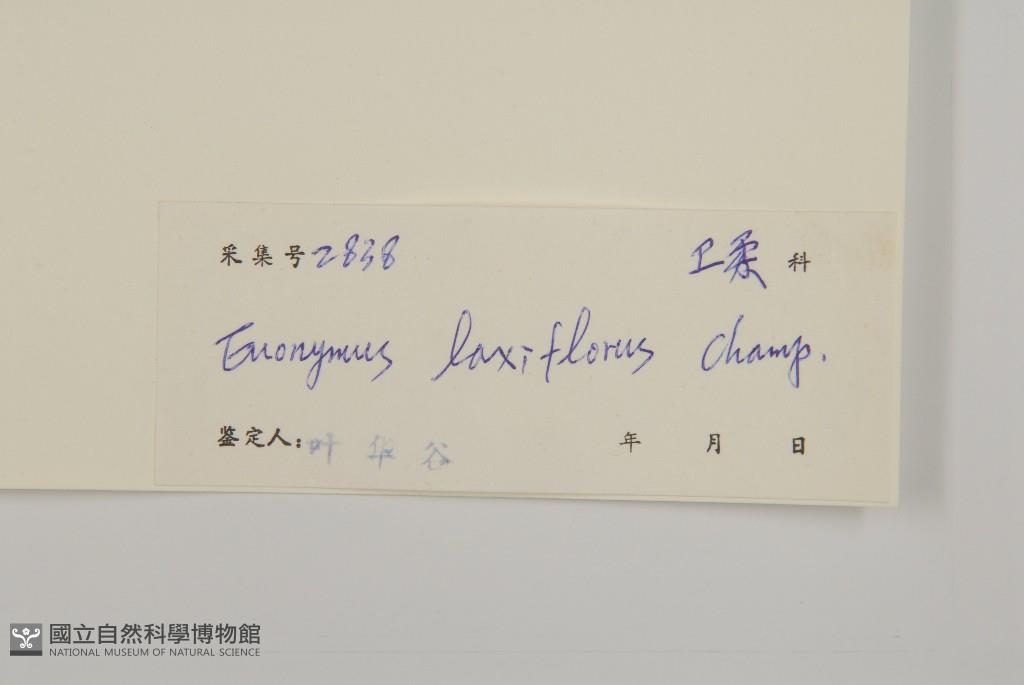 采集号 2838 卫柔 科
Euonymus laxiflorus Champ.
鉴定人: 叶华谷 年 月 日
國立自然科學博物館
NATIONAL MUSEUM OF NATURAL SCIENCE